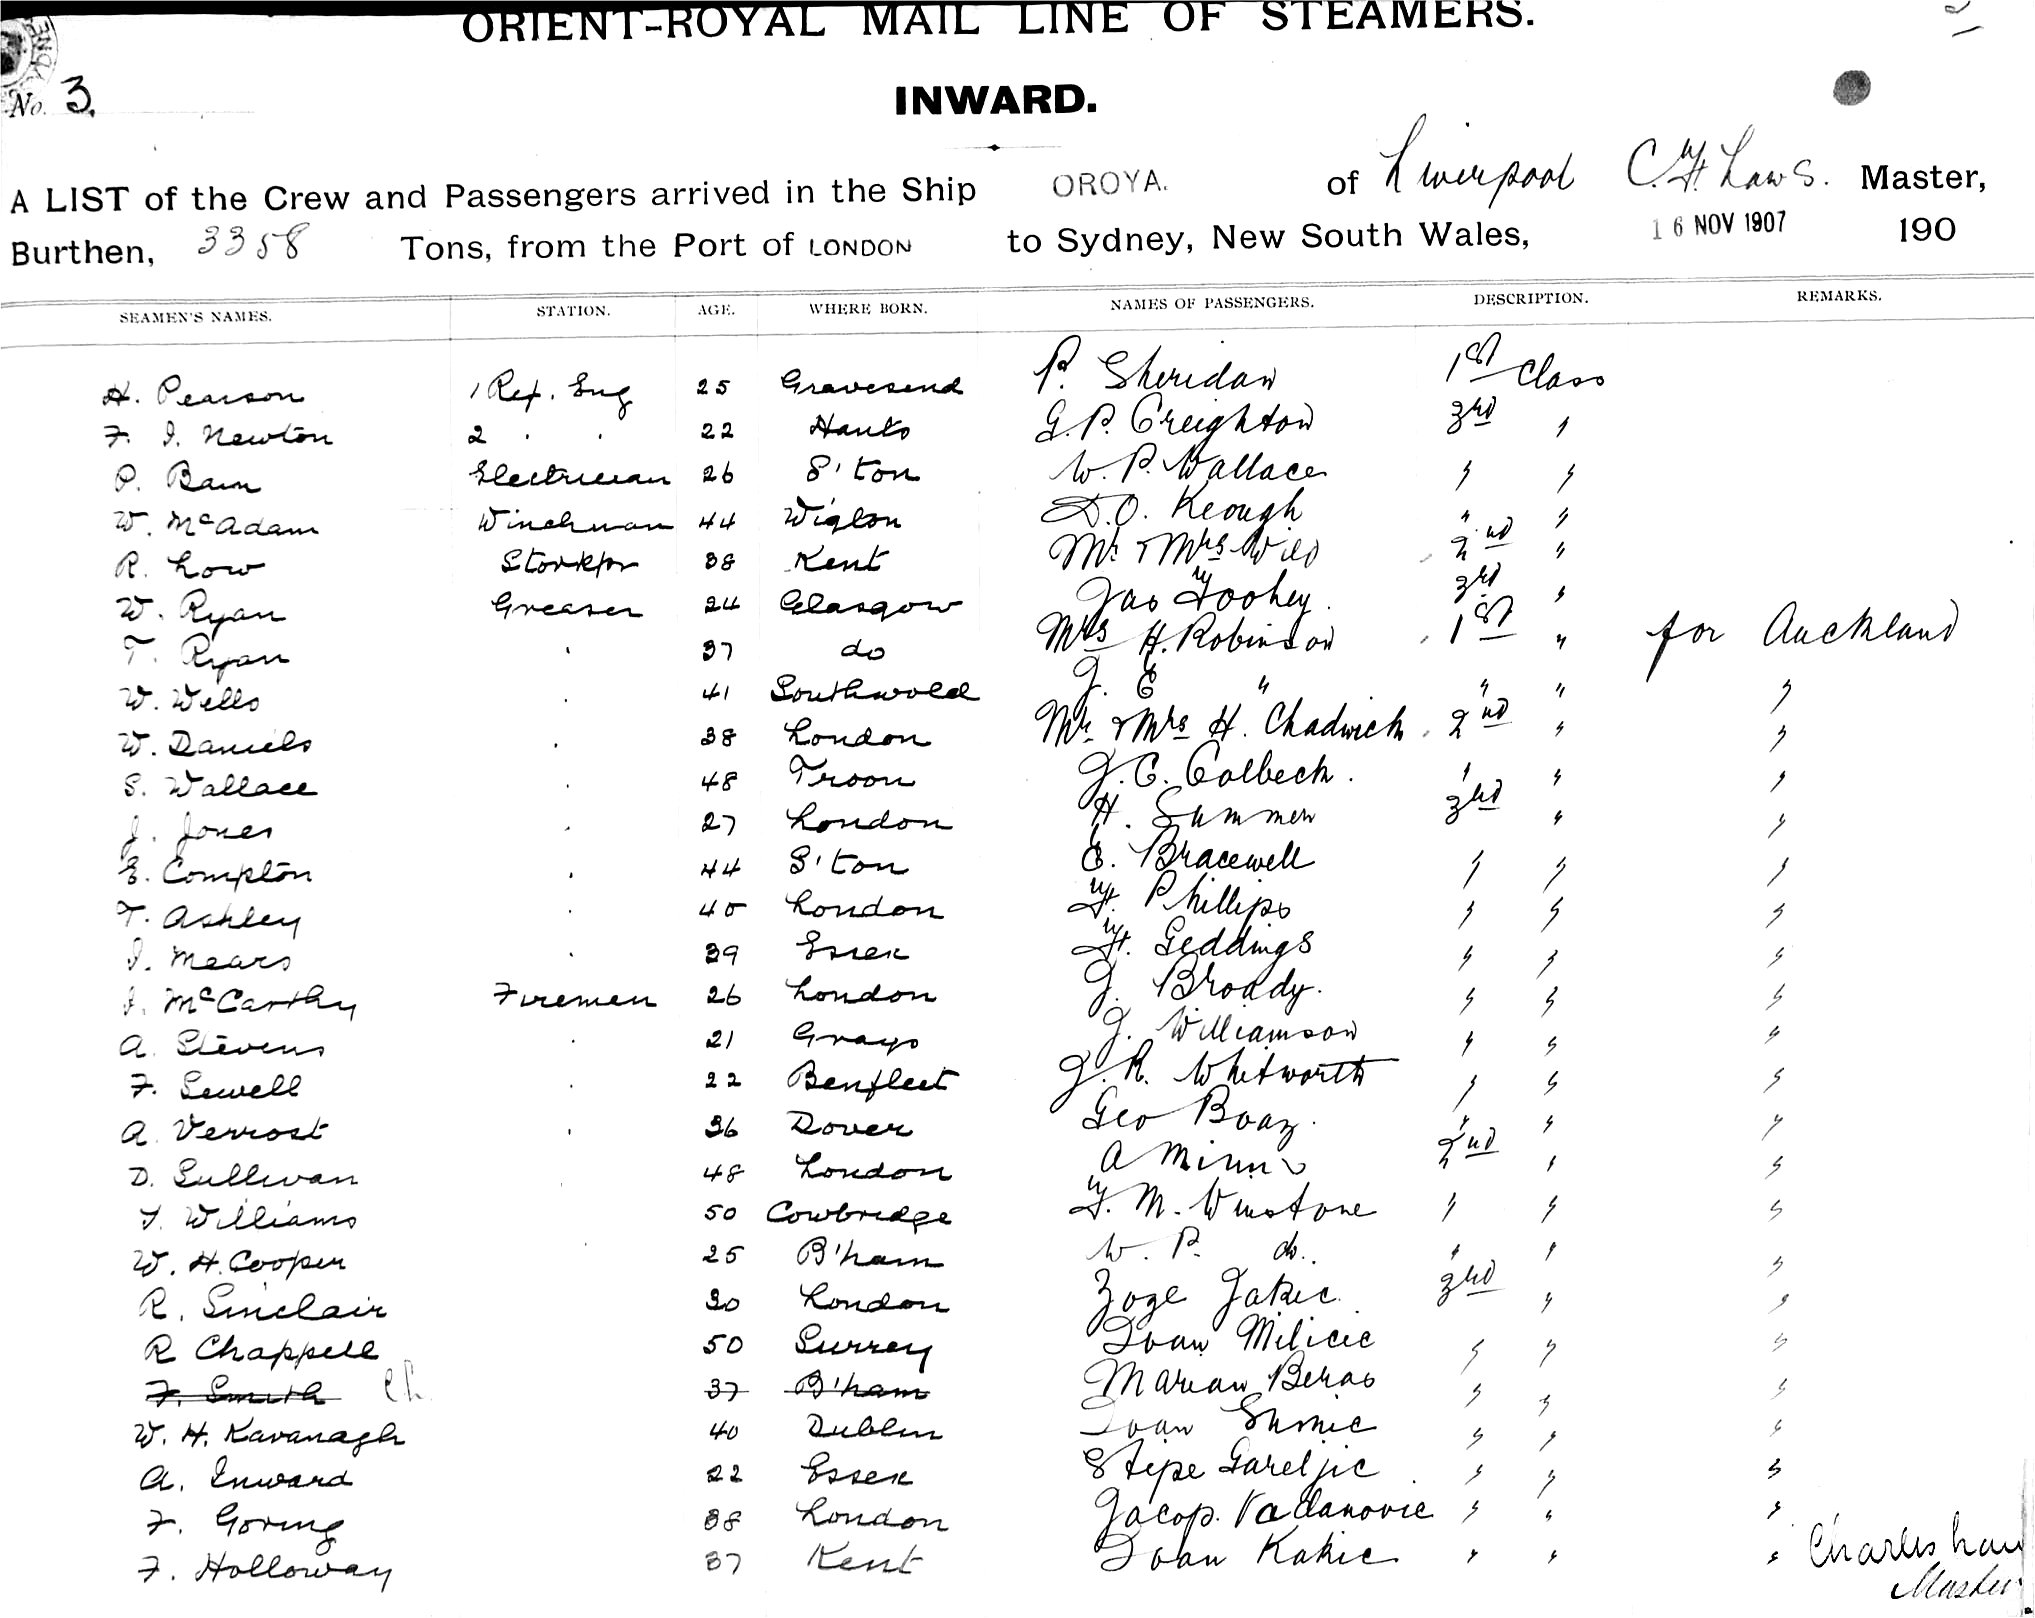 ORIENT-ROYAL MAIL LINE OF STEAMERS.
No. 3.
INWARD.
A LIST of the Crew and Passengers arrived in the Ship OROYA. of Liverpool C. F. Laws. Master,
Burthen, 3358 Tons, from the Port of LONDON to Sydney, New South Wales, 16 NOV 1907 190
SEAMEN'S NAMES. STATION. AGE. WHERE BORN. NAMES OF PASSENGERS. DESCRIPTION. REMARKS.
H. Pearson 1 Ref. Eng 25 Gravesend P. Sheridan 1st Class
F. J. Newton 2 " " 22 Hants G. P. Creighton 3rd "
P. Bain Electrician 26 S'ton W. P. Wallace " "
W. McAdam Winchman 44 Wigton D. O. Keough " "
R. Low Storkpr 38 Kent Mr & Mrs Wild 2nd "
W. Ryan Greaser 24 Glasgow Jas Toohey. 3rd "
T. Ryan " 37 do Mrs H. Robinson 1st " for Auckland
W. Wells " 41 Southwold J. E " " " "
W. Daniels " 38 London Mr & Mrs H. Chadwick 2nd " "
S. Wallace " 48 Troon J. C. Colbeck. " " "
J. Jones " 27 London H. Summer 3rd " "
E. Compton " 44 S'ton E. Bracewell " " "
T. Ashley " 40 London F. Phillips " " "
J. Mears " 39 Essex F. Geddings " " "
J. McCarthy Firemen 26 London J. Broady. " " "
A. Stevens " 21 Grays J. Williamson " " "
F. Sewell " 22 Benfleet J. R. Whitworth " " "
A. Verrost " 36 Dover Geo Boaz. " " "
D. Sullivan " 48 London A 2nd " "
J. Williams 50 Cowbridge F. M. Winstone " " "
W. H. Cooper " 25 B'ham W. P. do. " " "
R. Sinclair 30 London Zoze Jakic. 3rd " "
R Chappell 50 Surrey Ivan Milicic " " "
F. Smith 37 B'ham Marian Beras " " "
W. H. Kavanagh 40 Dublin Ivan " " "
A. Inward 22 Essex Stipe Gareljic " " "
F. Goring 38 London Jacop. Vadanovic " " "
F. Holloway 37 Kent Ivan Kakic " " " Charles Laws
Master